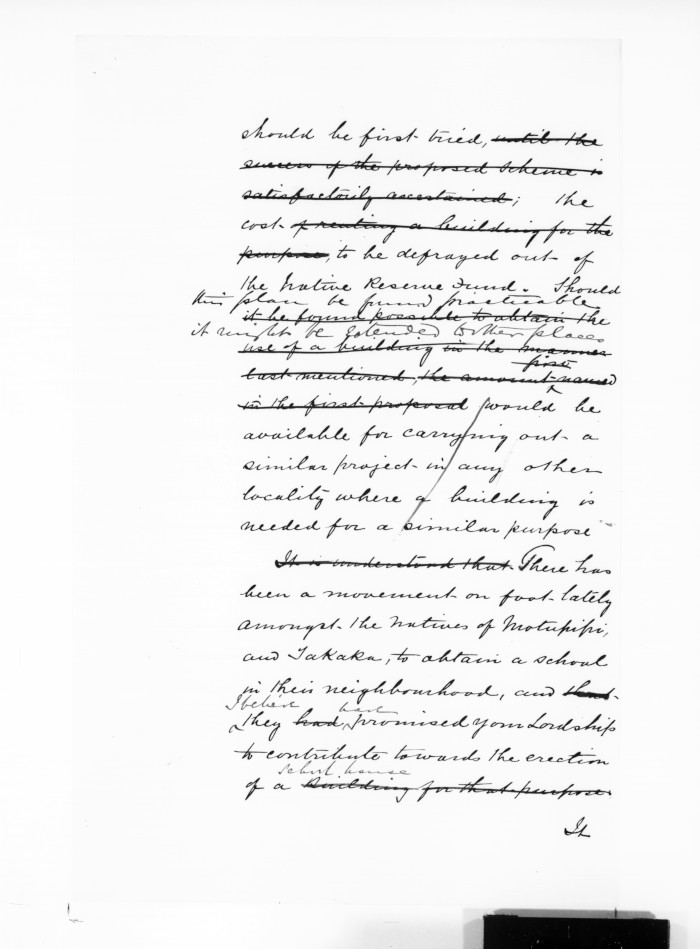 should be first tried, until the
success of the proposed scheme is
satisfactorily ascertained; the
cost of renting a building for the
purpose, to be defrayed out of
the Native Reserve Fund. Should
this plan be found practicable
it be found possible to obtain the
it might be extended to other places
use of a building in the manner
first
last mentioned, the amount named
in the first proposal would be
available for carrying out a
similar project in any other
locality where a building is
needed for a similar purpose
It is understood that There has
been a movement on foot lately
amongst the Natives of Motupipi,
and Takaka, to obtain a school
in their neighbourhood, and that
I believe have
they had promised your Lordship
to contribute towards the erection
school house
of a building for that purpose.
It